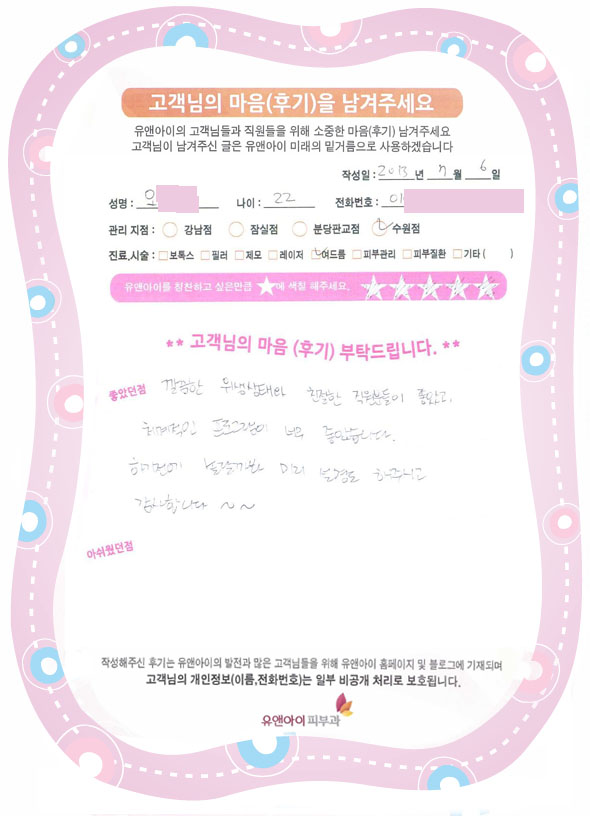 고객님의 마음(후기)을 남겨주세요
유앤아이의 고객님들과 직원들을 위해 소중한 마음(후기) 남겨주세요
고객님이 남겨주신 글은 유앤아이 미래의 밑거름으로 사용하겠습니다
작성일 : 2013 년 7 월 6 일
성명 : 오 나이 : 22 전화번호 : 01
관리 지점 : 강남점 잠실점 분당판교점 수원점
진료,시술 : 보톡스 필러 제모 레이저 여드름 피부관리 피부질환 기타 ( )
유앤아이를 칭찬하고 싶은만큼 ★에 색칠 해주세요.
** 고객님의 마음 (후기) 부탁드립니다. **
좋았던점 깔끔한 위생상태와 친절한 직원분들이 좋았고.
체계적인 프로그램이 너무 좋았습니다.
하기전에 놀랄까봐 미리 설명도 해주시고
감사합니다 ~ ~
아쉬웠던점
작성해주신 후기는 유앤아이의 발전과 많은 고객님들을 위해 유앤아이 홈페이지 및 블로그에 기재되며
고객님의 개인정보(이름,전화번호)는 일부 비공개 처리로 보호됩니다.
유앤아이피부과